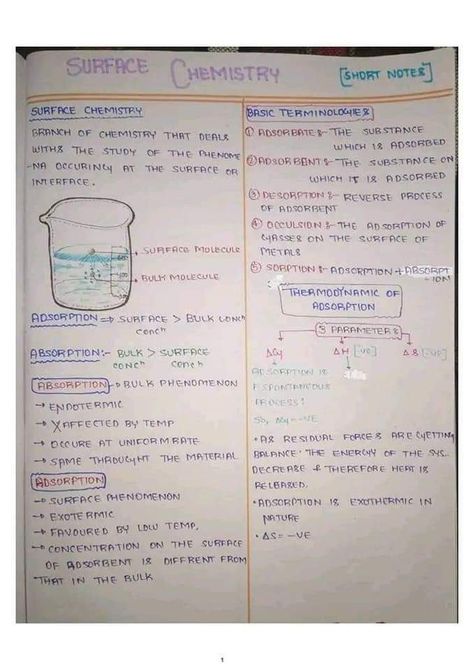 SURFACE CHEMISTRY
[SHORT NOTES]
SURFACE CHEMISTRY
BRANCH OF CHEMISTRY THAT DEALS
WITHS THE STUDY OF THE PHENOME
-NA OCCURINCY AT THE SURFACE OR
INTERFACE.
SURFACE MOLECULE
BULK MOLECULE
ADSORPTION ⇒ SURFACE > BULK CONCN
CONCN
ABSORPTION:- BULK > SURFACE
CONCN CONCN
ABSORPTION → BULK PHENOMENON
→ ENDOTERMIC
→ X AFFECTED BY TEMP
→ OCCURE AT UNIFORM RATE
→ SAME THROUGHT THE MATERIAL
ADSORPTION
→ SURFACE PHENOMENON
→ EXOTERMIC
→ FAVOURED BY LOW TEMP,
→ CONCENTRATION ON THE SURFACE
OF ADSORBENT IS DIFFRENT FROM
THAT IN THE BULK
BASIC TERMINOLOGIES
① ADSORBATE:- THE SUBSTANCE
WHICH IS ADSORBED
② ADSORBENT:- THE SUBSTANCE ON
WHICH IT IS ADSORBED
③ DESORPTION:- REVERSE PROCESS
OF ADSORBENT
④ OCCULSION:- THE ADSORPTION OF
GASSES ON THE SURFACE OF
METALS
⑤ SORPTION:- ADSORPTION + ABSORPT
-ION
THERMODYNAMIC OF
ADSORPTION
3 PARAMETERS
ΔG ΔH [-VE] ΔS [-VE]
ADSORPTION IS
SPONTANEOUS
PROCESS!
SO, ΔG = -VE
• AS RESIDUAL FORCES ARE GETTING
BALANCE THE ENERGY OF THE SYS..
DECREASE & THEREFORE HEAT IS
RELEASED.
• ADSORPTION IS EXOTHERMIC IN
NATURE
• ΔS = -VE
1